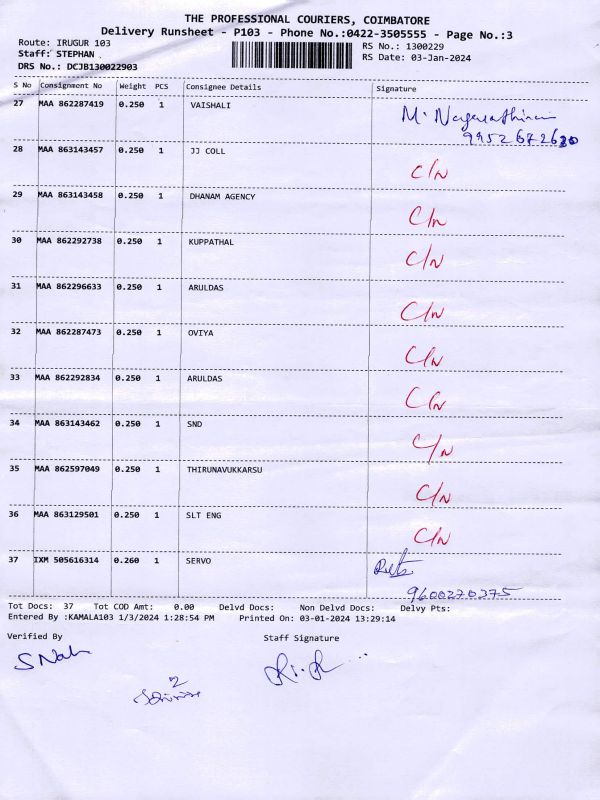 THE PROFESSIONAL COURIERS, COIMBATORE
Delivery Runsheet - P103 - Phone No.:0422-3505555 - Page No.:3
Route: IRUGUR 103 RS No.: 1300229
Staff: STEPHAN . RS Date: 03-Jan-2024
DRS No.: DCJB130022903
S No Consignment No Weight PCS Consignee Details Signature
27 MAA 862287419 0.250 1 VAISHALI M.
99526726
28 MAA 863143457 0.250 1 JJ COLL C/N
29 MAA 863143458 0.250 1 DHANAM AGENCY C/N
30 MAA 862292738 0.250 1 KUPPATHAL C/N
31 MAA 862296633 0.250 1 ARULDAS C/N
32 MAA 862287473 0.250 1 OVIYA C/N
33 MAA 862292834 0.250 1 ARULDAS C/N
34 MAA 863143462 0.250 1 SND C/N
35 MAA 862597049 0.250 1 THIRUNAVUKKARSU C/N
36 MAA 863129501 0.250 1 SLT ENG C/N
37 IXM 505616314 0.260 1 SERVO
9600270375
Tot Docs: 37 Tot COD Amt: 0.00 Delvd Docs: Non Delvd Docs: Delvy Pts:
Entered By :KAMALA103 1/3/2024 1:28:54 PM Printed On: 03-01-2024 13:29:14
Verified By Staff Signature